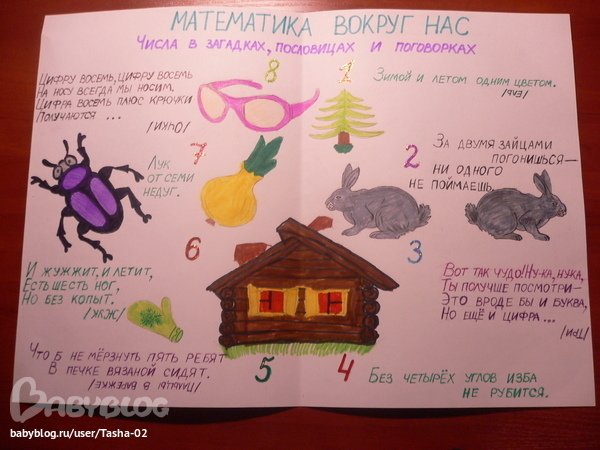 МАТЕМАТИКА ВОКРУГ НАС
ЧИСЛА В ЗАГАДКАХ, ПОСЛОВИЦАХ И ПОГОВОРКАХ
ЦИФРУ ВОСЕМЬ, ЦИФРУ ВОСЕМЬ
НА НОСУ ВСЕГДА МЫ НОСИМ.
ЦИФРА ВОСЕМЬ ПЛЮС КРЮЧКИ
ПОЛУЧАЮТСЯ ...
/ОЧКИ/
8
1
ЗИМОЙ И ЛЕТОМ ОДНИМ ЦВЕТОМ.
/ЕЛЬ/
7
ЛУК
ОТ СЕМИ
НЕДУГ.
2
ЗА ДВУМЯ ЗАЙЦАМИ
ПОГОНИШЬСЯ—
НИ ОДНОГО
НЕ ПОЙМАЕШЬ.
6
И ЖУЖЖИТ, И ЛЕТИТ,
ЕСТЬ ШЕСТЬ НОГ,
НО БЕЗ КОПЫТ.
/ЖУК/
3
ВОТ ТАК ЧУДО! НУ-КА, НУКА,
ТЫ ПОЛУЧШЕ ПОСМОТРИ—
ЭТО ВРОДЕ БЫ И БУКВА,
НО ЕЩЁ И ЦИФРА...
/ТРИ/
ЧТО Б НЕ МЁРЗНУТЬ ПЯТЬ РЕБЯТ
В ПЕЧКЕ ВЯЗАНОЙ СИДЯТ.
/ПАЛЬЦЫ В ВАРЕЖКЕ/
5
4
БЕЗ ЧЕТЫРЁХ УГЛОВ ИЗБА
НЕ РУБИТСЯ.
BABYBLOG
babyblog.ru/user/Tasha-02